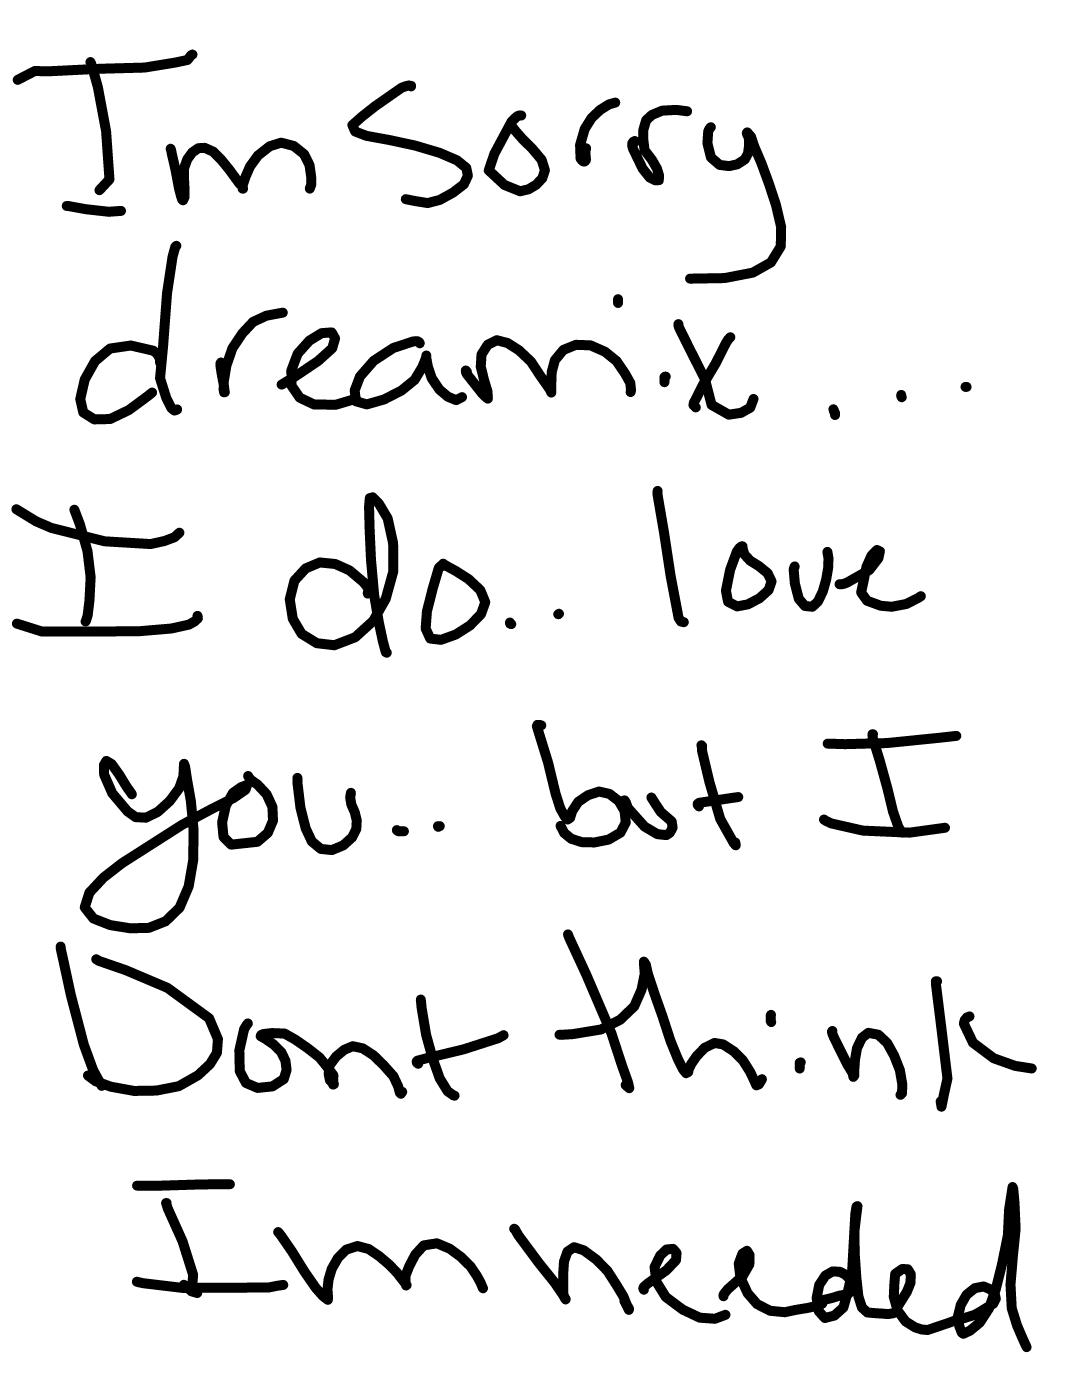 Im sorry
dreamix...
I do.. love
you.. but I
Dont think
Im needed